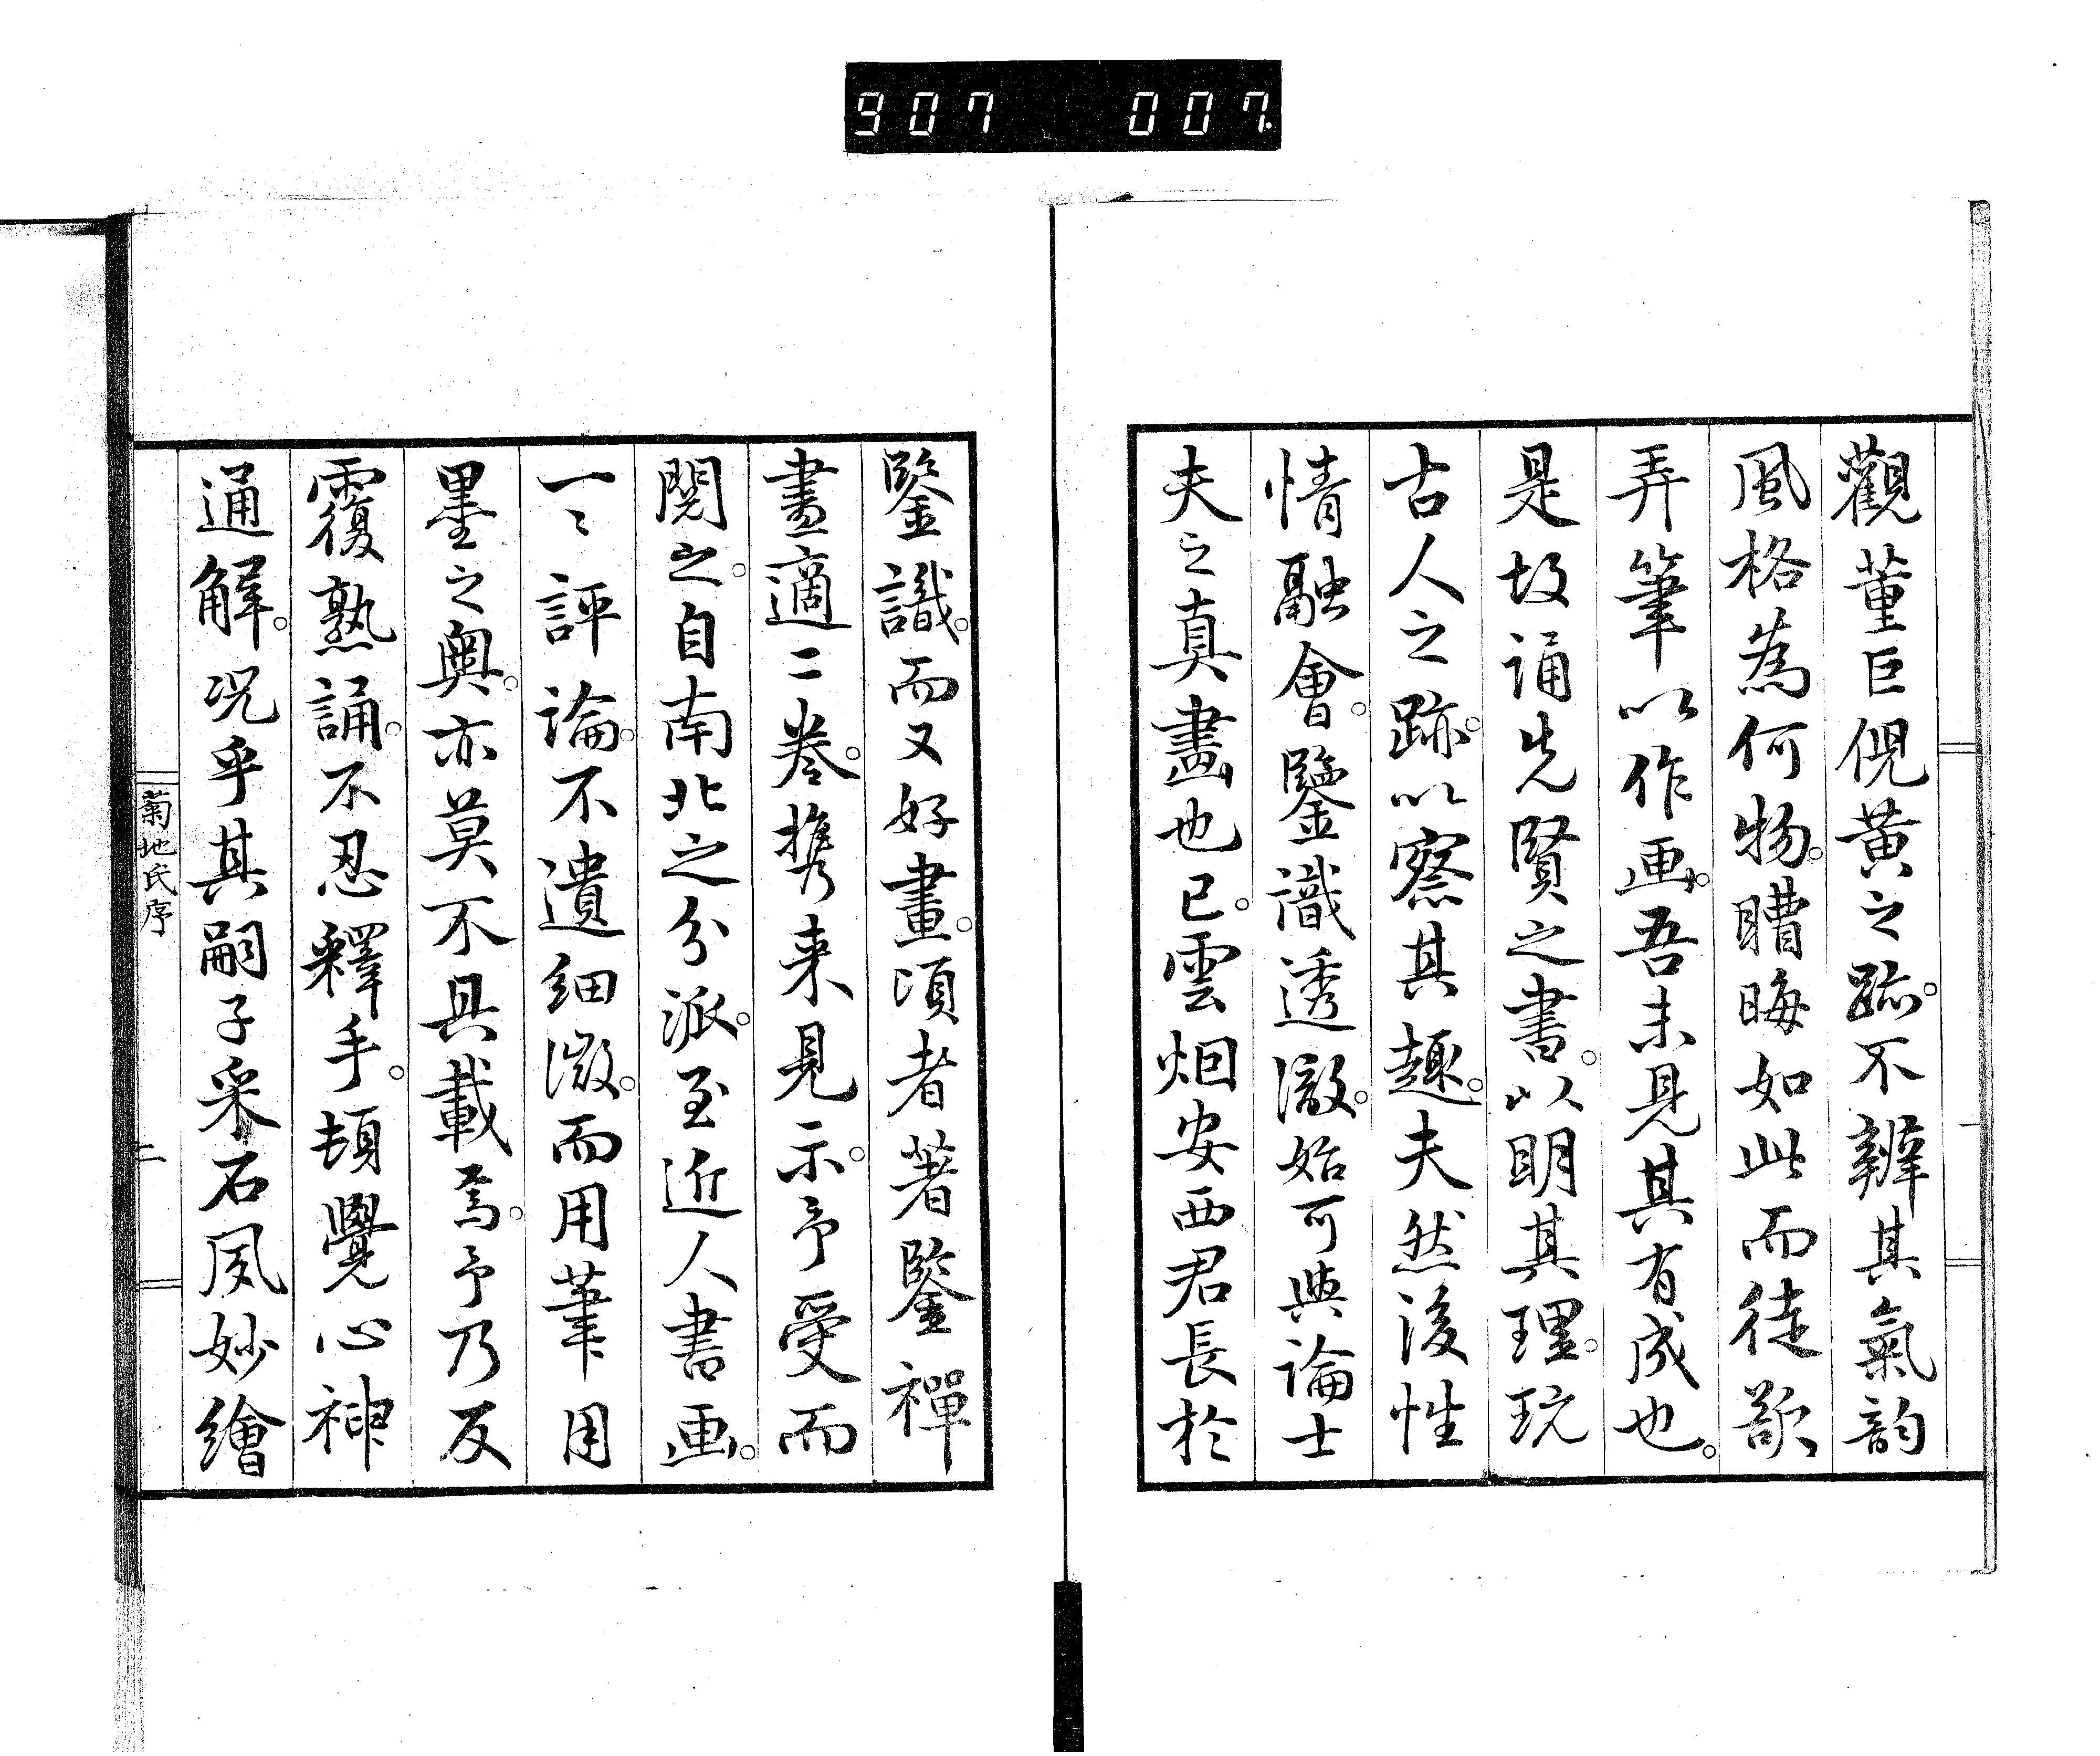 907 007.
觀董巨倪黄之跡。不辨其氣韵
風格為何物。瞶晦如此而徒欲
弄筆以作画。吾未見其有成也。
是故誦先賢之書。以明其理。玩
古人之跡。以察其趣。夫然後性
情融會。鑒識透澈。始可與論士
夫之真畫也已。雲烟安西君長於
鑒識。而又好畫。頃者著鑒禪
畫適二巻。携来見示。予受而
閱之。自南北之分派。至近人書画。
一々評論。不遺細微。而用筆用
墨之奥。亦莫不具載焉。予乃反
覆熟誦。不忍釋手。頓覺心神
通解。况乎其嗣子采石夙妙繪
菊地氏序
二